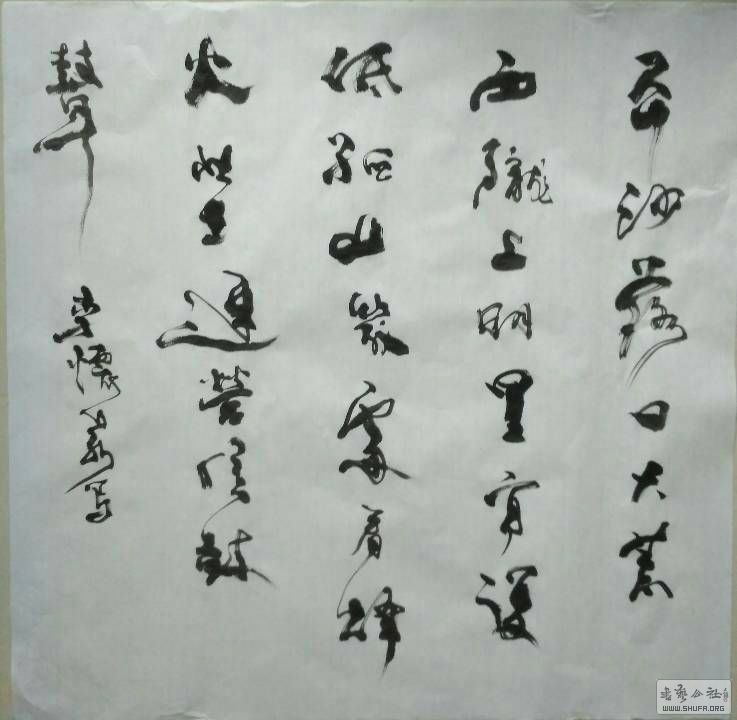 平沙落日大荒
西隴上明星高復
低孤山幾處看烽
火壯士連營候鼓
鼙
李義写
书艺公社
WWW.SHUFA.ORG